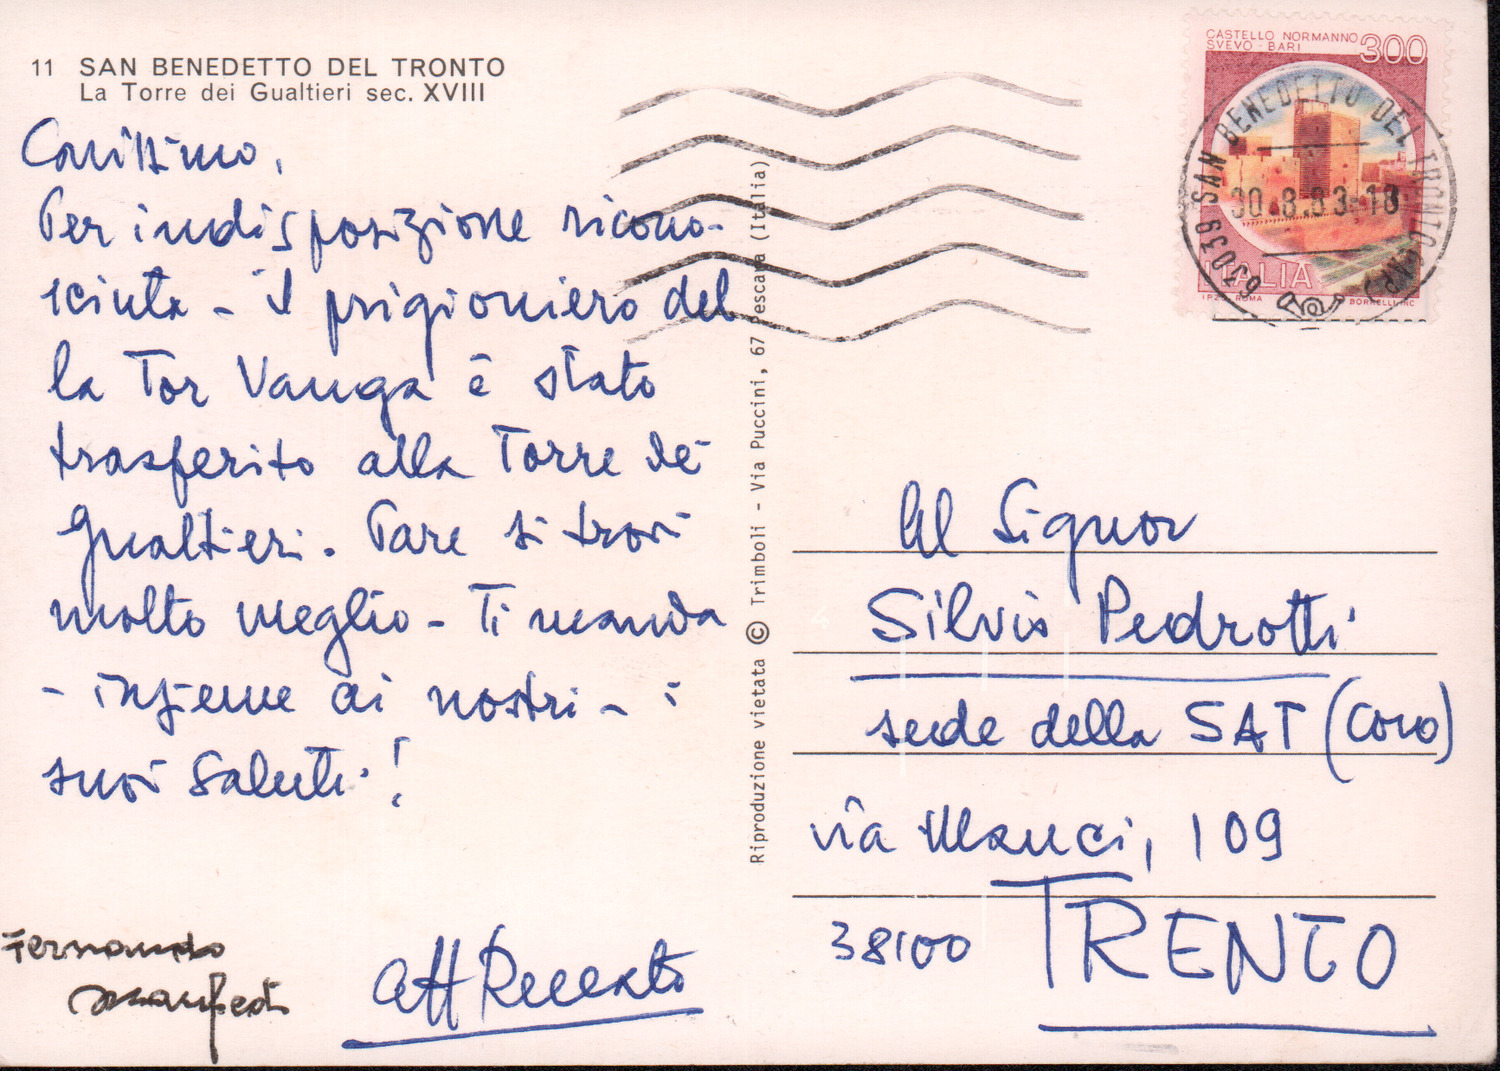 11 SAN BENEDETTO DEL TRONTO
La Torre dei Gualtieri sec. XVIII
Carissimo,
Per indisposizione ricono-
sciuta - il prigioniero del
la Tor Vanga è stato
trasferito alla Torre de'
Gualtieri. Pare si trovi
molto meglio - Ti manda
- insieme ai nostri - i
suoi saluti!
Fernando
Manfredi
aff
Riproduzione vietata © Trimboli - Via Puccini, 67 Pescara (Italia)
CASTELLO NORMANNO
SVEVO - BARI
300
ITALIA
ROMA
BORRELLI INC
63039 SAN BENEDETTO DEL TRONTO
30.8.83-18
Al Signor
Silvio Pedrotti
sede della SAT (Coro)
via Manci, 109
38100 TRENTO